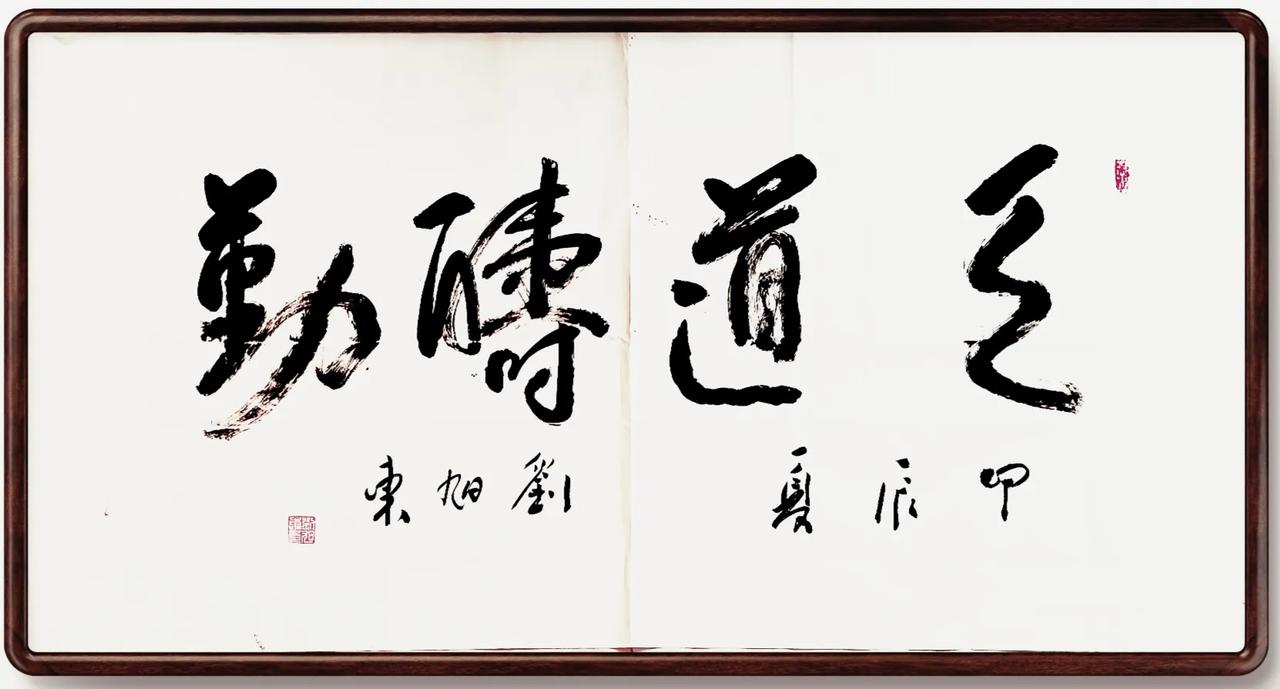 天道酬勤
甲辰夏
劉旭東